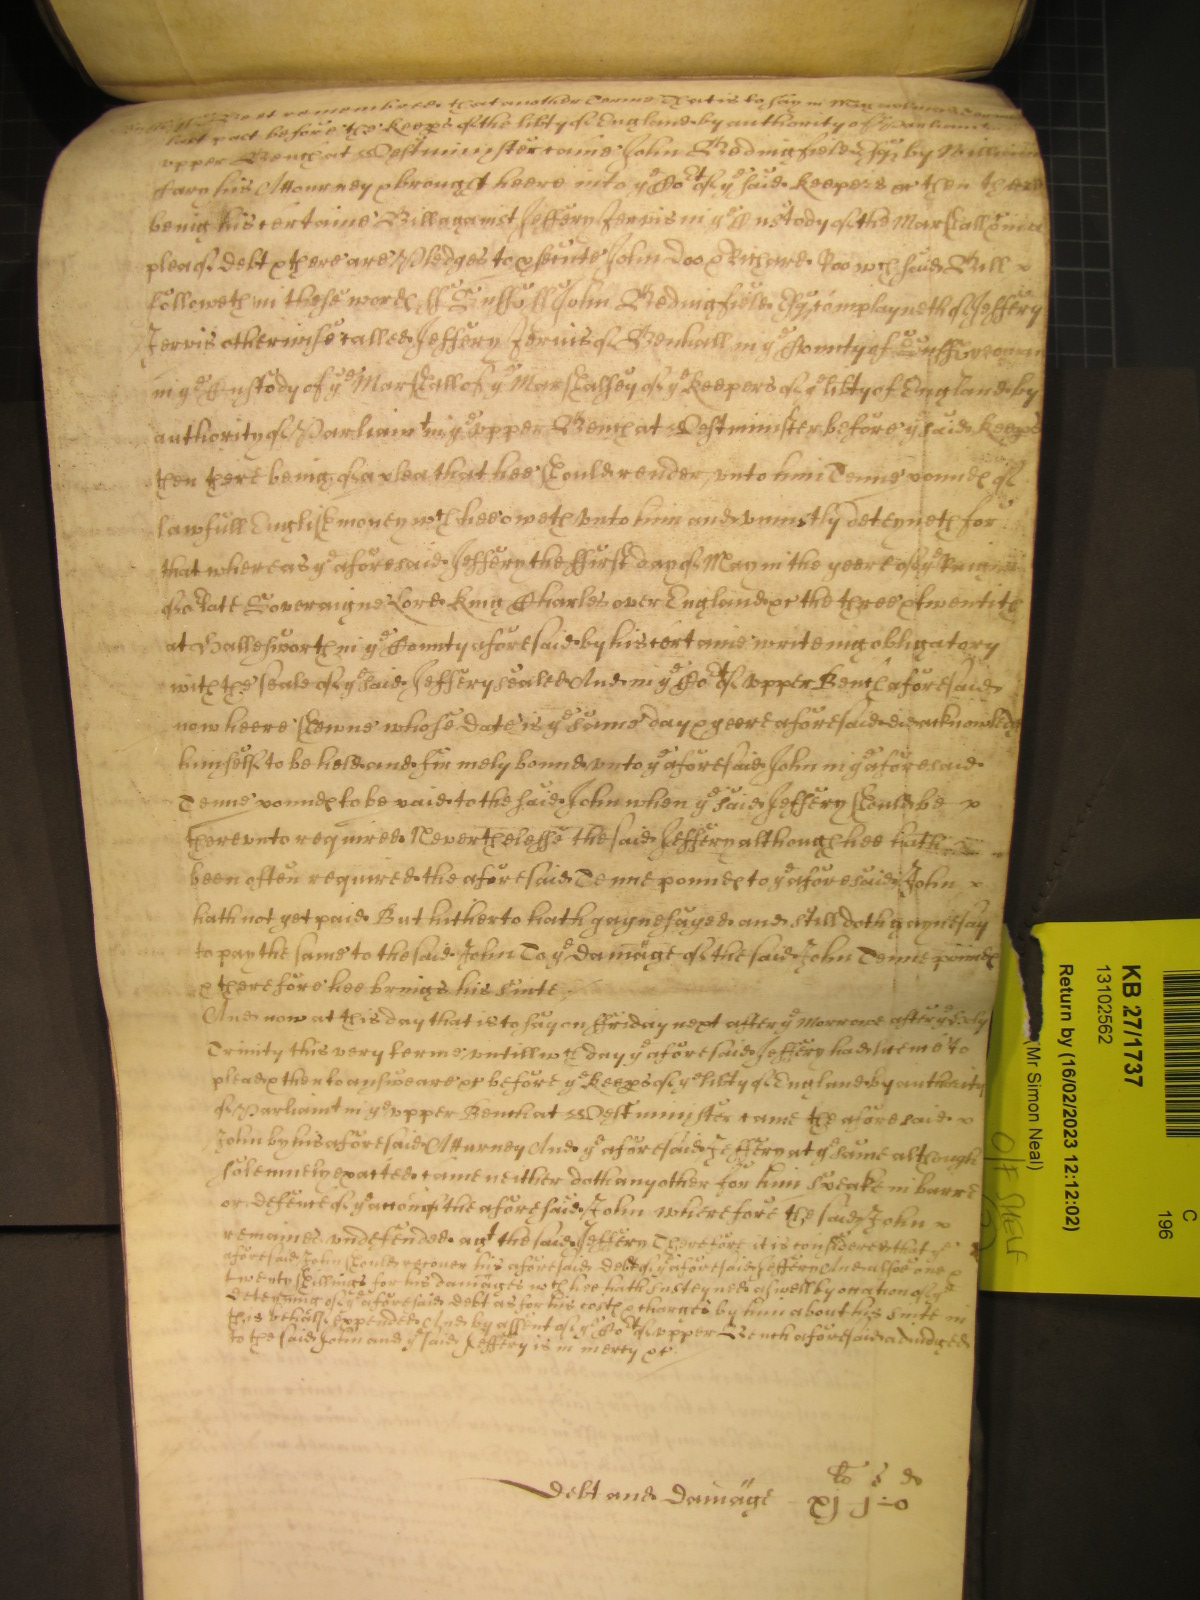 Bee it remembred that another Terme That is to say in
last past before the keeps of the lib'ty of England by authority of Parliam
upper Bench at Westminster came John Bedingfield Esqr by William
his Attourney & brought heere into ye Cort of ye said keepers &c then there
being his certaine Bill against Jeffery Jervis in ye Custody of the Marshall &c in a
plea of debt & there are Pledges to prosecute John Doo & Richard Roo wch said Bill
followeth in these words ss Suffolk ss John Bedingfield Esqr complayneth of Jeffery
Jervis otherwise called Jeffery Jervis of Benhall in ye County of Suff yeoman
in ye Custody of ye Marshall of ye Marshalsey of ye keepers of ye lib'ty of England by
authority of Parliamt in ye upper Bench at Westminster before ye said keeps
then there being of a plea that hee should render unto him Tenne pounds of
lawfull English money wch hee oweth unto him and uniustly deteyneth for
that whereas ye aforesaid Jeffery the ffirst day of May in the yeere of ye Raigne
of or late Soveraigne Lord King Charles over England &c the three & twentith
at Hallesworth in ye County aforesaid by his certaine writeing obligatory
with the seale of ye said Jeffery sealed And in ye Cort of upper Bench aforesaid
now heere shewne whose date is ye same day & yeere aforesaid did acknowledge
himself to be held and firmely bound unto ye aforesaid John in ye aforesaid
Tenne pounds to be paid to the said John when ye said Jeffery should be
thereunto required Neverthelesse the said Jeffery although hee hath
been often required the aforesaid Tenne pounds to ye aforesaid John
hath not yet paid But hitherto hath gaynesayed and still doth gaynesay
to pay the same to the said John To ye damage of the said John Tenne pounds
& therefore hee brings his suite
And now at this day that is to say on ffriday next after ye Morrowe after ye Holy
Trinity this very terme untill wch day ye aforesaid Jeffery had licence to
plead & then to answeare &c before ye keeps of ye lib'ty of England by authority
of Parliamt in ye upper Bench at Westminster came the aforesaid
John by his aforesaid Atturney And ye aforesaid Jeffery at ye same although
solemnely exacted came neither doth any other for him speake in barre
or defence of ye action of the aforesaid John wherefore the said John
remaines undefended agt the said Jeffery Therefore it is considered that ye
aforesaid John should recover his aforesaid debt of ye aforesaid Jeffery And alsoe one &
twenty shillings for his damages wch hee hath susteyned aswell by occation of ye
deteyning of ye aforesaid debt as for his costs & charges by him about his suite in
this behalfe expended And by assent of ye Cort of upper Bench aforesaid adiudged
to the said John and ye said Jeffery is in mercy &c
li s d
Debt and damage xj j 0
KB 27/1737
13102562
Return by (16/02/2023 12:12:02)
(Mr Simon Neal)
C
196
O/F SHELF